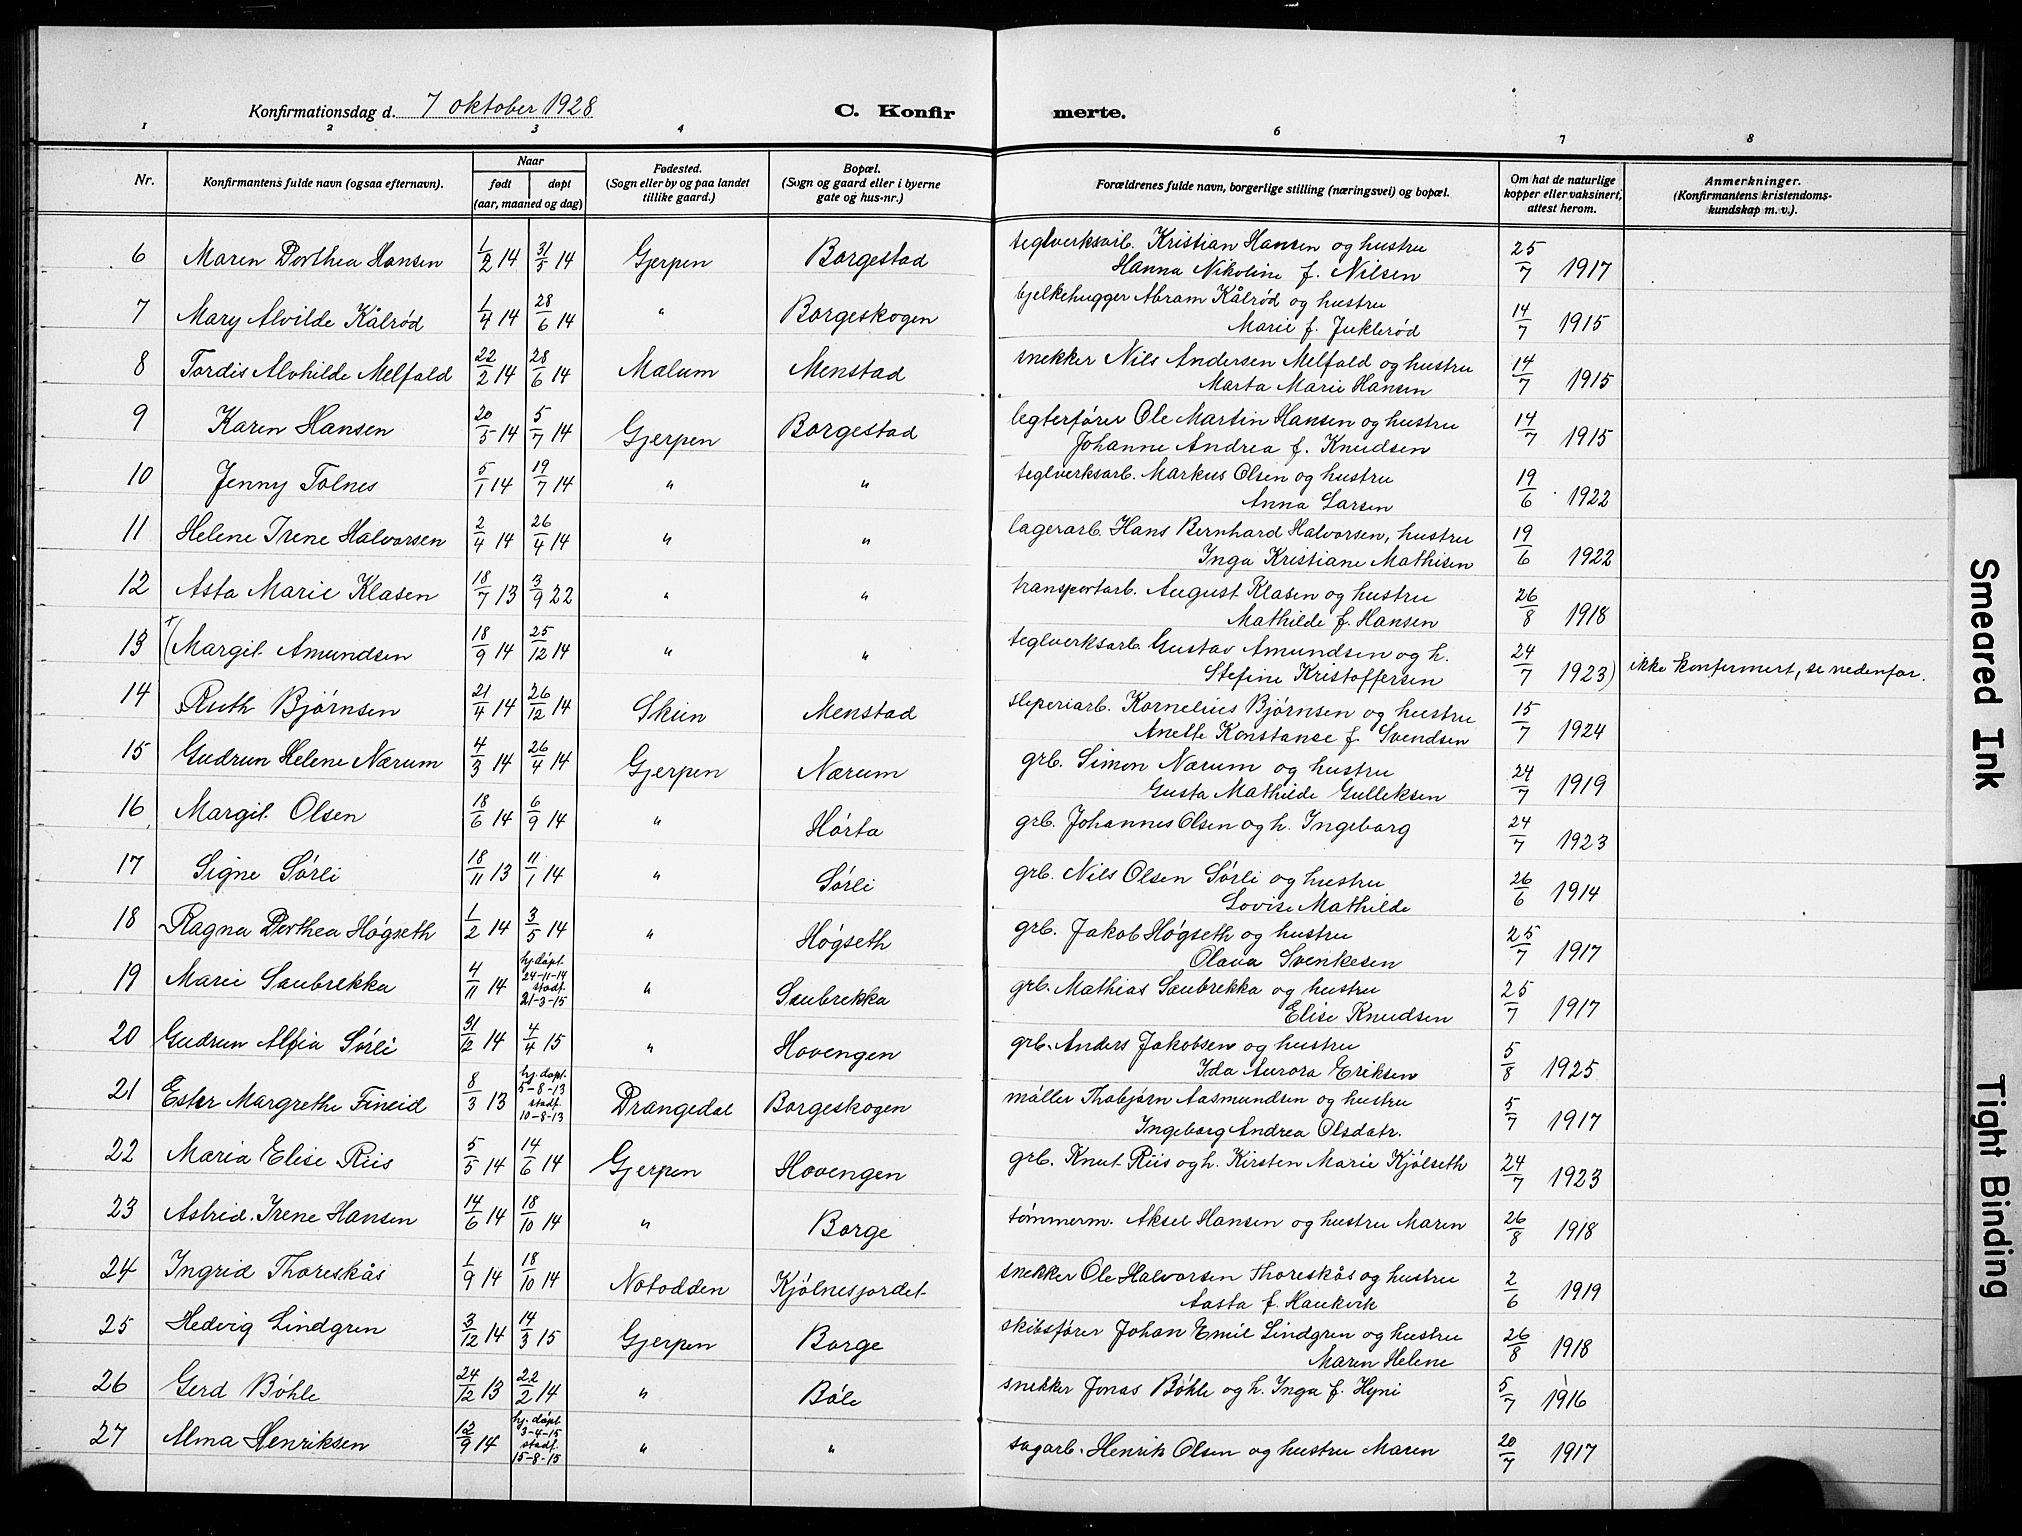 Konfirmationsdag d. 7 oktober 1928 C. Konfir merte.
1 2 3 4 6 7 8
Nr. Konfirmantens fulde navn (ogsaa efternavn). Naar født døpt (aar, maaned og dag) Fødested. (Sogn eller by og paa landet tillike gaard.) Bopæl. (Sogn og gaard eller i byerne gate og hus-nr.) Forældrenes fulde navn, borgerlige stilling (næringsvei) og bopæl. Om hat de naturlige kopper eller vaksinert, attest herom. Anmerkninger. (Konfirmantens kristendoms-kundskap m. v.).
6 Maren Dorthea Hansen 1/2 14 31/5 14 Gjerpen Borgestad teglverksarb. Kristian Hansen og hustru 25/7 1917
Hanna Nikoline f. Nilsen
7 Mary Alvilde Kålrød 1/4 14 28/6 14 " Borgeskogen bjelkehugger Abram Kålrød og hustru 14/7 1915
Marie f. Juklerød
8 Tordis Alvhilde Melfald 22/2 14 28/6 14 Mælum Menstad snekker Nils Andersen Melfald og hustru 14/7 1915
Marta Marie Hansen
9 Karen Hansen 20/5 14 5/7 14 Gjerpen Borgestad legterfører Ole Martin Hansen og hustru 14/7 1915
Johanne Andrea f. Knudsen
10 Jenny Tolnes 5/1 14 19/7 14 " " teglverksarb. Markus Olsen og hustru 19/6 1922
Anna Larsen
11 Helene Irene Halvorsen 2/4 14 26/4 14 " " lagerarb. Hans Bernhard Halvorsen, hustru 19/6 1922
Inga Kristiane Mathisen
12 Asta Marie Klasen 18/7 13 3/9 22 " " transportarb. August Klasen og hustru 26/8 1918
Mathilde f. Hansen
13 (Margit Amundsen 18/9 14 25/12 14 " " teglverksarb. Gustav Amundsen og h. 24/7 1923) ikke konfermert, se nedenfor.
Stefine Kristoffersen
14 Ruth Bjørnsen 21/4 14 26/12 14 Skien Menstad sleperiarb. Kornelius Bjørnsen og hustru 15/7 1924
Anette Konstance f. Svendsen
15 Gudrun Helene Nærum 4/3 14 26/4 14 Gjerpen Nærum grb. Simon Nærum og hustru 24/7 1919
Gusta Mathilde Gulleksen
16 Margit Olsen 18/6 14 6/9 14 " Hørta grb. Johannes Olsen og h. Ingeborg 24/7 1923
17 Signe Sørli 18/11 13 11/1 14 " Sørli grb. Nils Olsen Sørli og hustru 26/6 1914
Lovise Mathilde
18 Ragna Dorthea Høgseth 1/2 14 3/5 14 " Høgseth grb. Jakob Høgseth og hustru 25/7 1917
Olava Svenkesen
19 Marie Saubrekka 4/11 14 hj. døpt 24-11-14 stadf. 21-3-15 " Saubrekka grb. Mathias Saubrekka og hustru 25/7 1917
Elise Knudsen
20 Gudrun Alfia Sørli 31/12 14 4/4 15 " Hovengen grb. Anders Jakobsen og hustru 5/8 1925
Ida Aurora Eriksen
21 Ester Margrethe Fineid 8/3 13 hj. døpt 5-8-13 stadf. 10-8-13 Drangedal Borgeskogen møller Thobjørn Aasmundsen og hustru 5/7 1917
Ingeborg Andrea Olsdatr.
22 Maria Elise Riis 5/5 14 14/6 14 Gjerpen Hovengen grb. Knut Riis og h. Kirsten Marie Kjølseth 24/7 1923
23 Astrid Irene Hansen 14/6 14 18/10 14 " Borge tømmerm. Aksel Hansen og hustru Maren 26/8 1918
24 Ingrid Thoreskås 1/9 14 18/10 14 Notodden Kjølnesjordet snekker Ole Halvorsen Thoreskås og hustru 2/6 1919
Aasta f. Haukvik
25 Hedvig Lindgren 3/12 14 14/3 15 Gjerpen Borge skibsfører Johan Emil Lindgren og hustru 26/8 1918
Maren Helene
26 Gerd Bøhle 24/12 13 22/2 14 " Bøle snekker Jonas Bøhle og h. Inga f. Hyni 5/7 1916
27 Alma Henriksen 12/9 14 hj. døpt 3-4-15 stadf. 15-8-15 " " sagarb. Henrik Olsen og hustru Maren 20/7 1917
Smeared Ink
Tight Binding